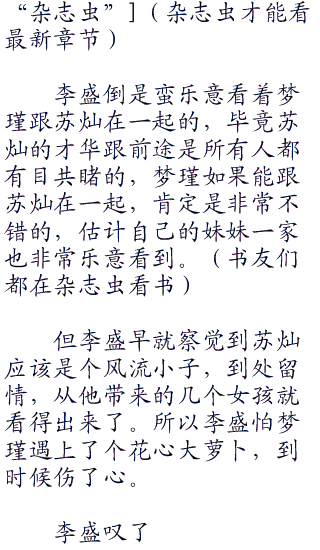 “杂志虫”]（杂志虫才能看
最新章节）
李盛倒是蛮乐意看着梦
瑾跟苏灿在一起的，毕竟苏
灿的才华跟前途是所有人都
有目共睹的，梦瑾如果能跟
苏灿在一起，肯定是非常不
错的，估计自己的妹妹一家
也非常乐意看到。（书友们
都在杂志虫看书）
但李盛早就察觉到苏灿
应该是个风流小子，到处留
情，从他带来的几个女孩就
看得出来了。所以李盛怕梦
瑾遇上了个花心大萝卜，到
时候伤了心。
李盛叹了